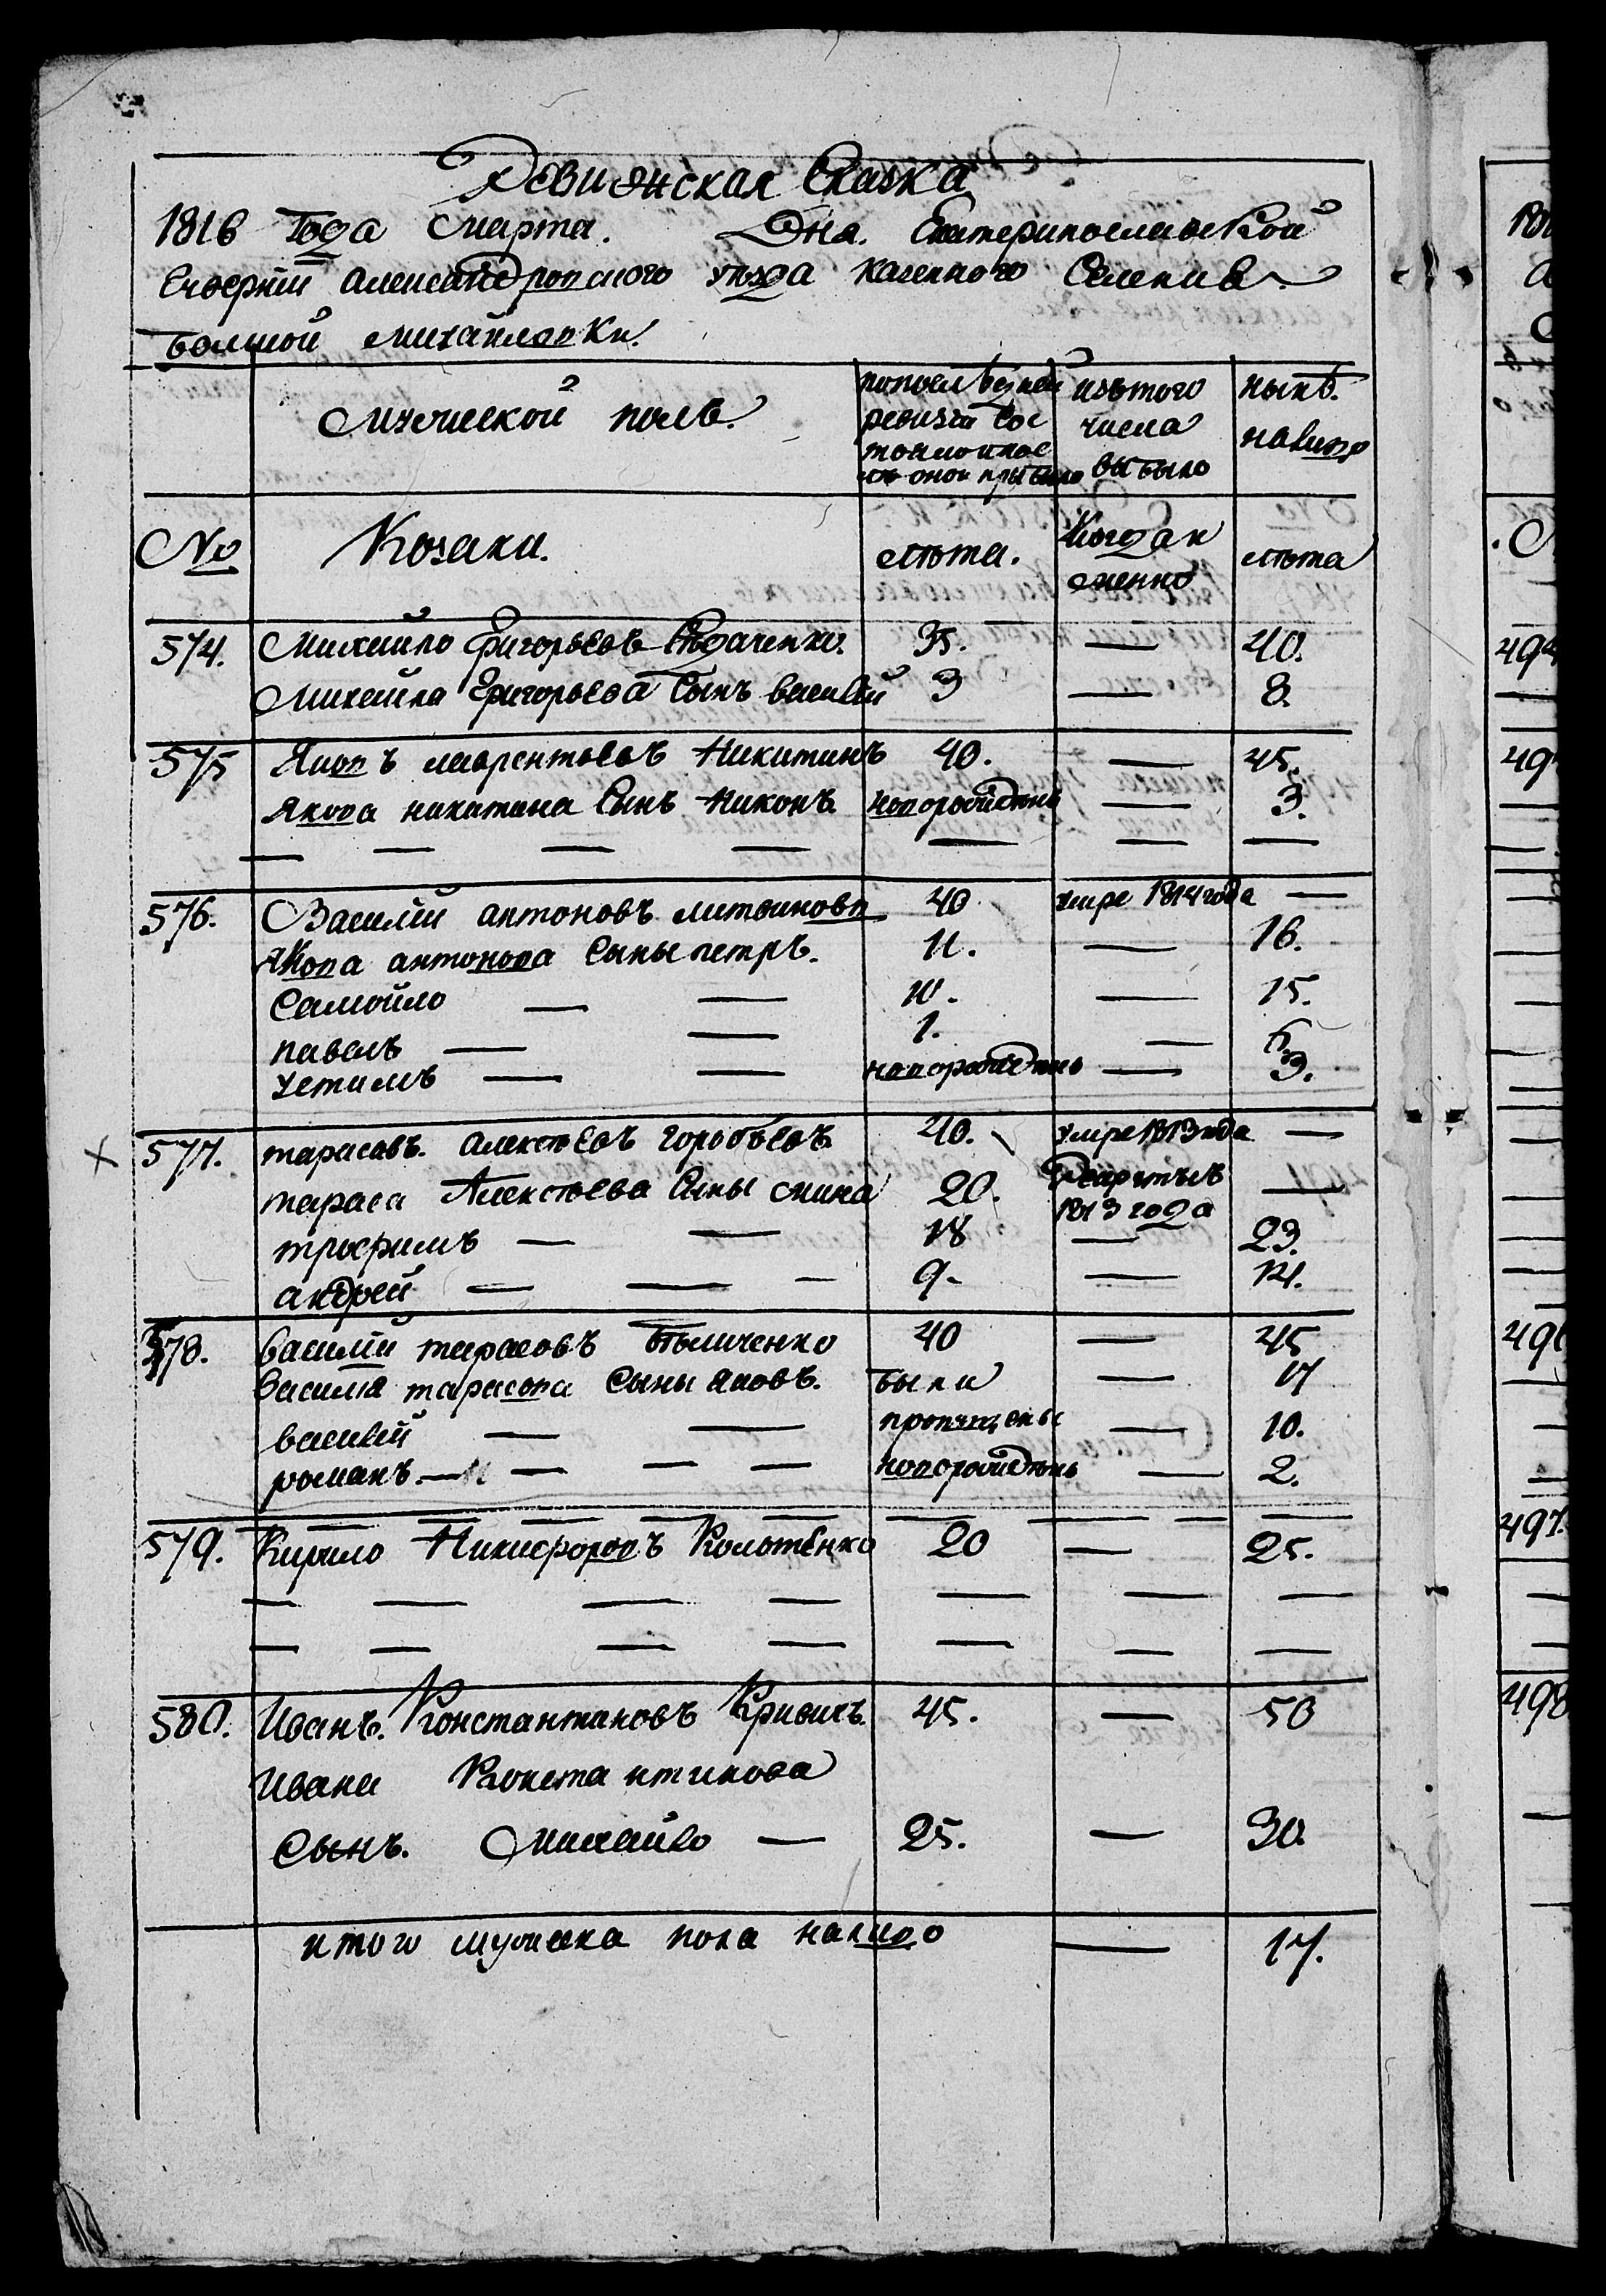 Ревизская Сказка
1816 Года Марта. Дня. Екатеринославской
Губернии Александровского уезда казенного Селения
Болшой михайловки.
Мужеской полъ.
попоследней
ревизии сос
тояло ипос
ле оной прибыло
изътого
числа
выбыло
нынѣ.
налицо
№
Козаки.
лѣта.
Когда и
менно
лѣта
574. Михайло Григорьевъ 35. — 40.
Михайла Григорьева Сынъ василий 3 — 8.
575 Яковъ лаврентьевъ Никитинъ 40. — 45.
Якова никитина Сынъ Никонъ новорожденъ — 3.
— — — — — — —
576. Василий антоновъ литвиновъ 40 умре 1814 года —
Якова антонова Сыны петръ. 11. — 16.
Самойло — — 10. — 15.
павелъ — — 1. — 6.
устимъ — — новорожденъ — 3.
577. тарасовъ. алексѣевъ горобьевъ 40. умре 1813 года —
тараса Алексѣева Сыны мина 20. —
1813 года
трофимъ — — 18 — 23.
андрей — — — 9. — 14.
578. василий тарасовъ Бѣличенко 40 — 45
василия тарасова Сыны яковъ. были — 17
василий — — пропущены — 10.
романъ. — — — — новорожденъ — 2.
579. Кирило Никифоровъ 20 — 25.
— — — — — — —
— — — — — — —
580. Иванъ. Константиновъ Кривичъ. 45. — 50
Ивана Константинова
Сынъ. Михайло — 25. — 30.
итого мужеска пола налицо — 17.
494
497.
498